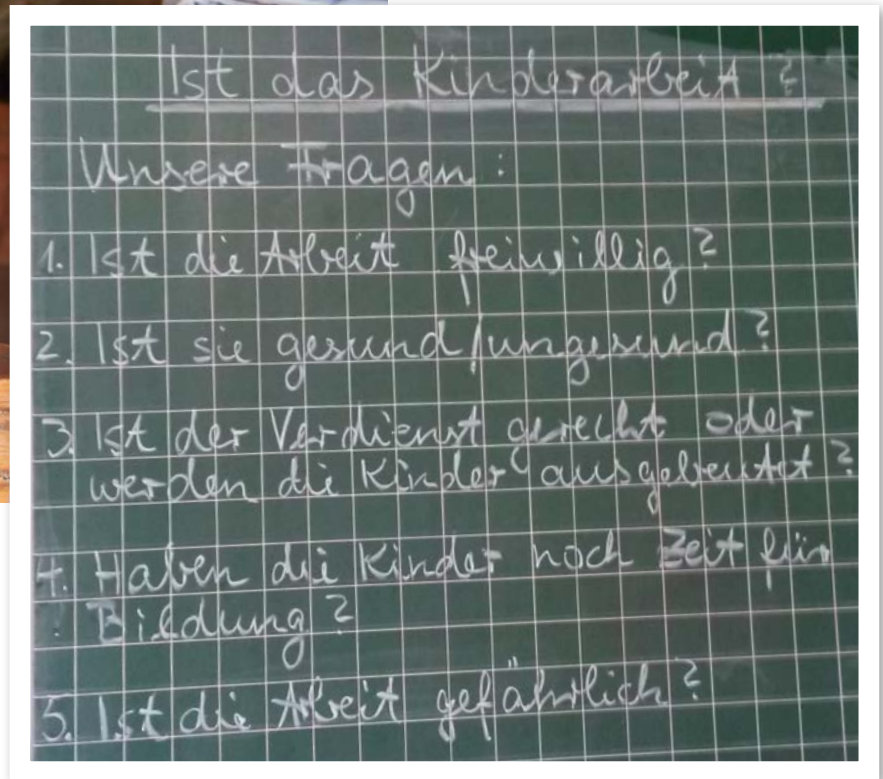 Ist das Kinderarbeit?
Unsere Fragen:
1. Ist die Arbeit freiwillig?
2. Ist sie gesund/ungesund?
3. Ist der Verdienst gerecht oder
werden die Kinder ausgebeutet?
4. Haben die Kinder noch Zeit für
Bildung?
5. Ist die Arbeit gefährlich?